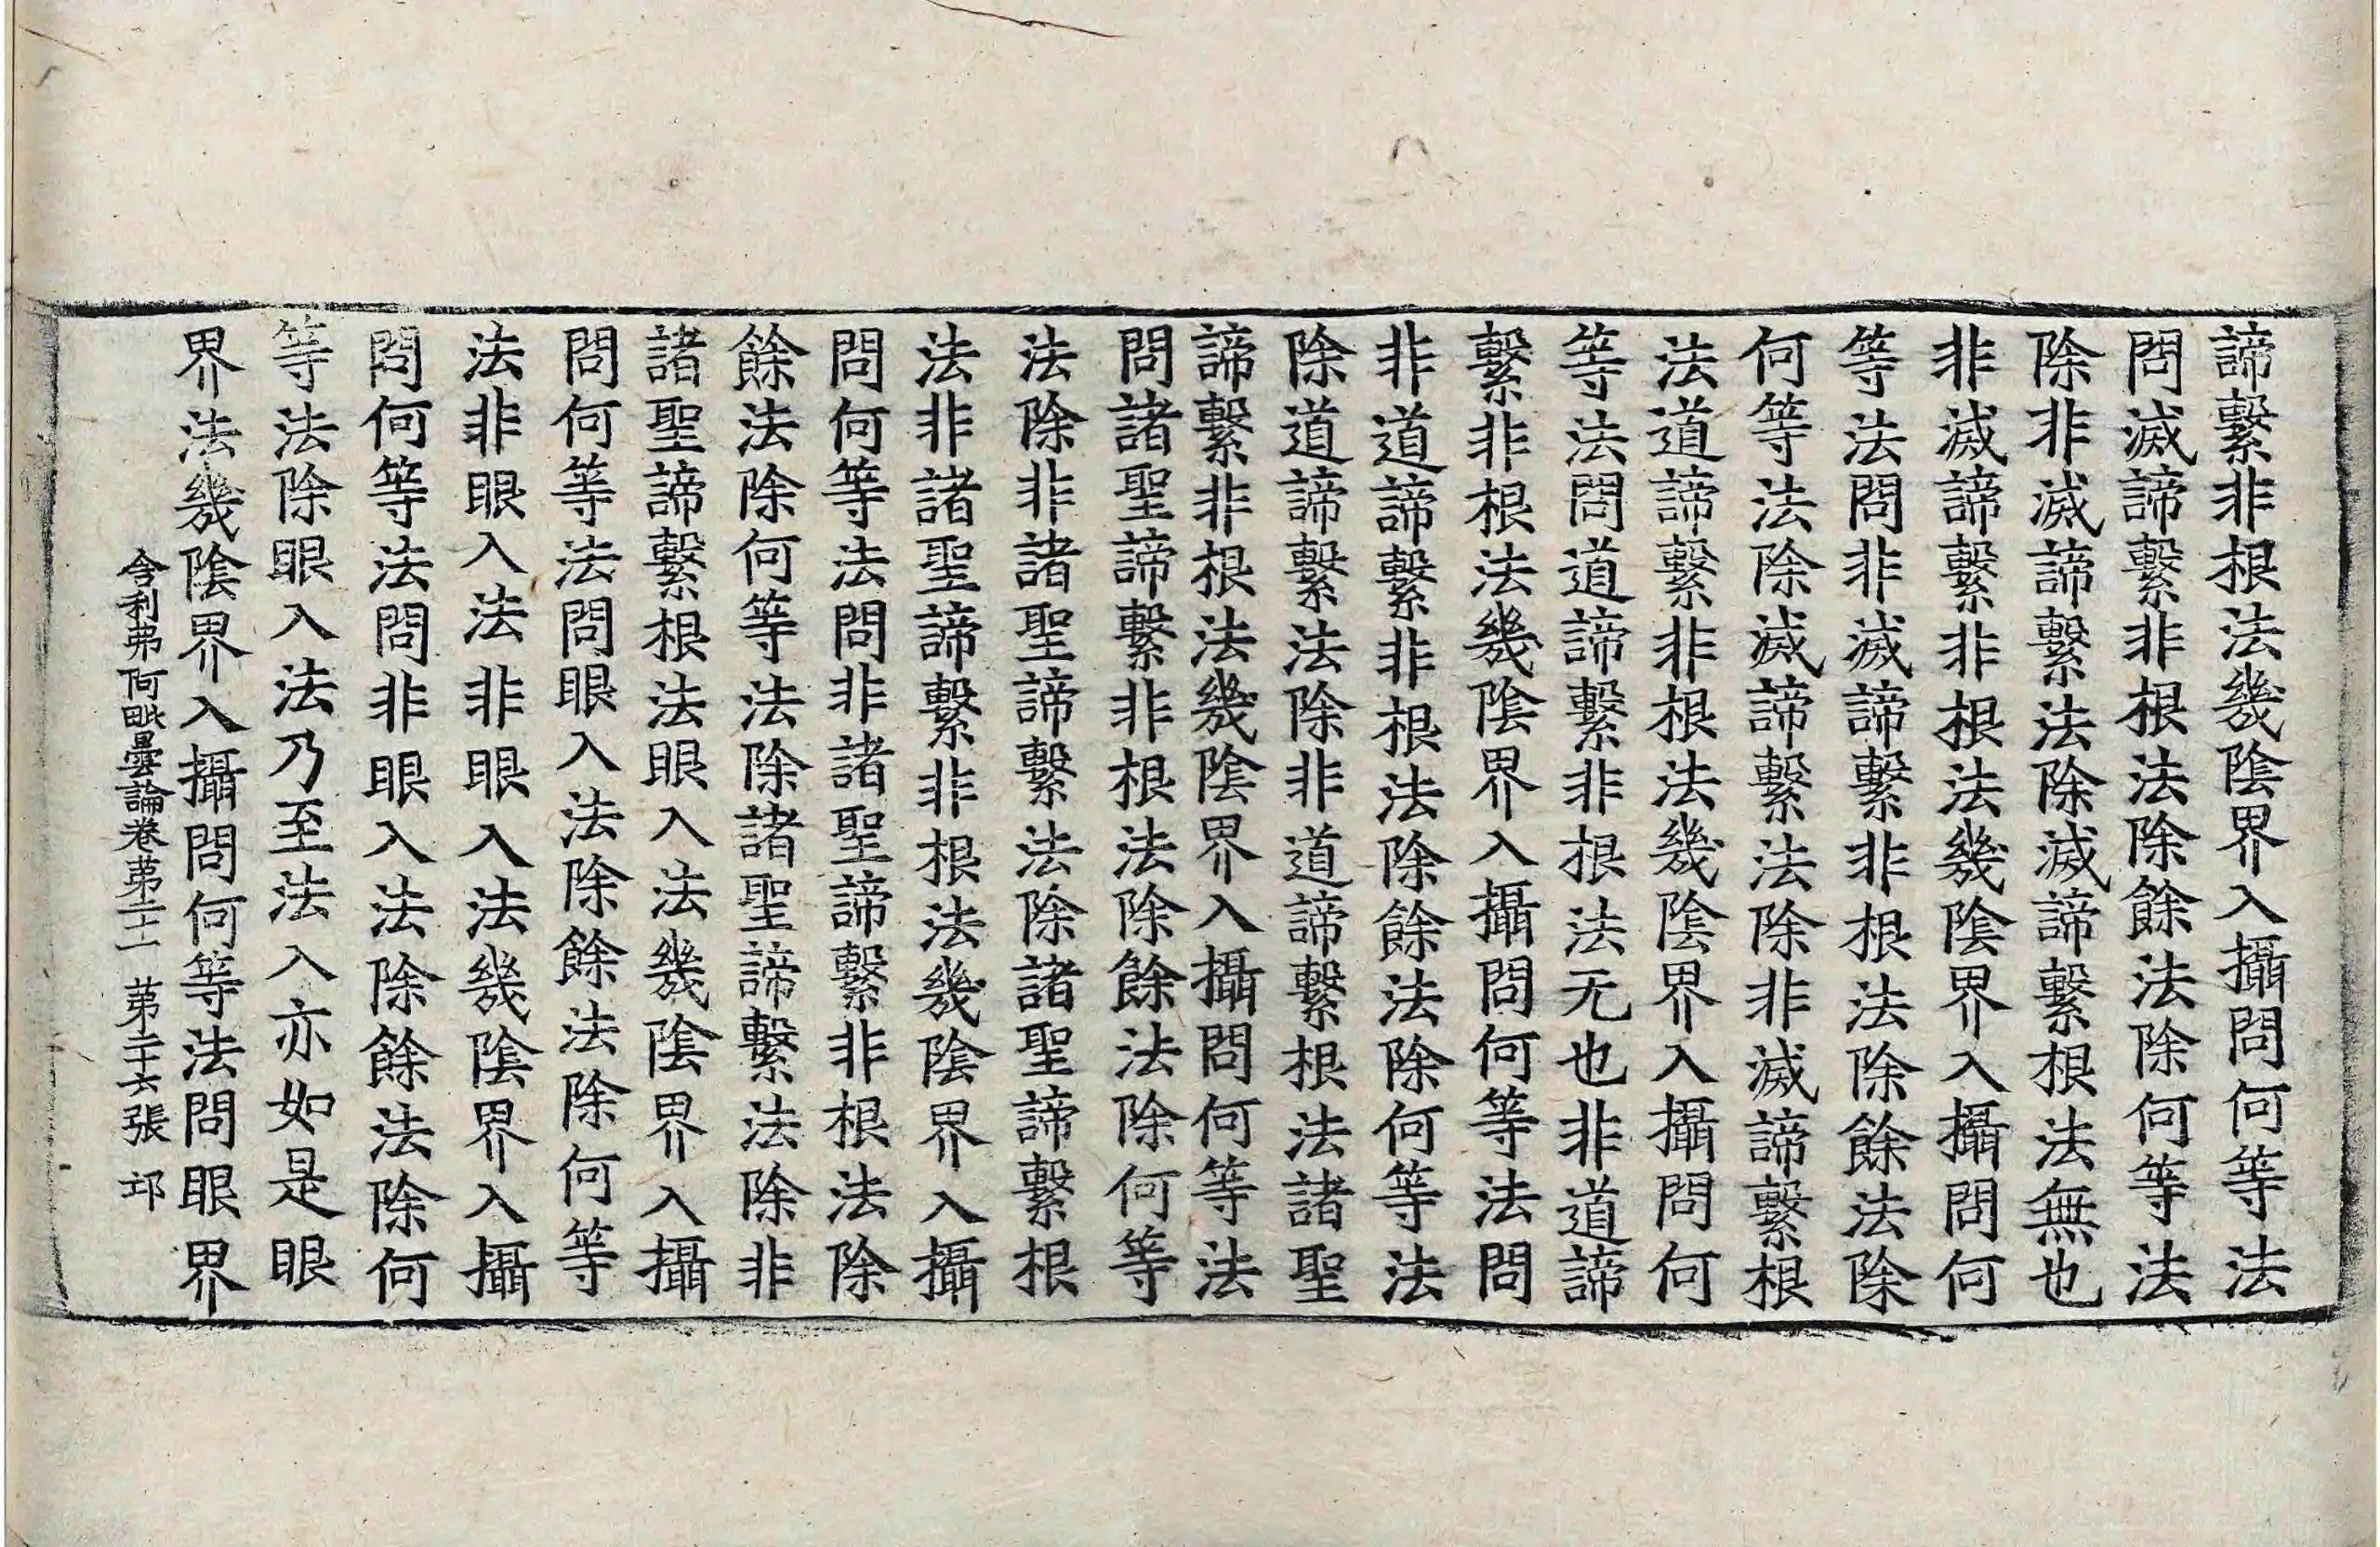 諦繫非根法幾陰界入攝問何等法
問滅諦繫非根法除餘法除何等法
除非滅諦繫法除滅諦繫根法無也
非滅諦繫非根法幾陰界入攝問何
等法問非滅諦繫非根法除餘法除
何等法除滅諦繫法除非滅諦繫根
法道諦繫非根法幾陰界入攝問何
等法問道諦繫非根法无也非道諦
繫非根法幾陰界入攝問何等法問
非道諦繫非根法除餘法除何等法
除道諦繫法除非道諦繫根法諸聖
諦繫非根法幾陰界入攝問何等法
問諸聖諦繫非根法除餘法除何等
法除非諸聖諦繫法除諸聖諦繫根
法非諸聖諦繫非根法幾陰界入攝
問何等法問非諸聖諦繫非根法除
餘法除何等法除諸聖諦繫法除非
諸聖諦繫根法眼入法幾陰界入攝
問何等法問眼入法除餘法除何等
法非眼入法非眼入法幾陰界入攝
問何等法問非眼入法除餘法除何
等法除眼入法乃至法入亦如是眼
界法幾陰界入攝問何等法問眼界
舍利弗阿毗曇論卷苐二十一 苐二十六張 邛